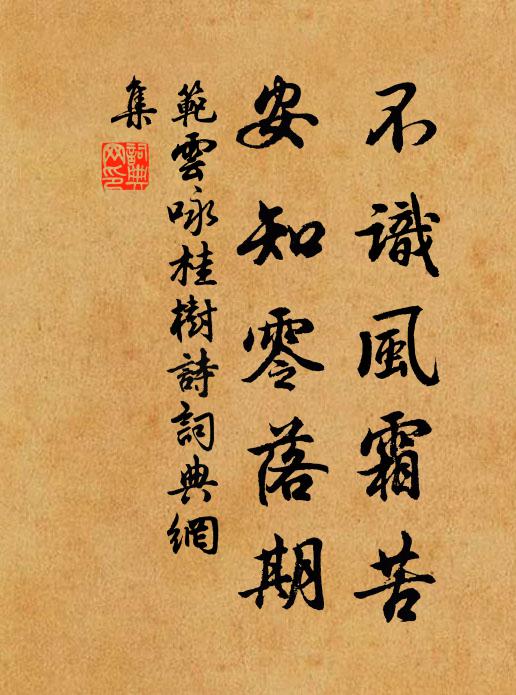 不識風霜苦
安知零落期
範雲咏桂樹詩詞典網
集
詞典
网印